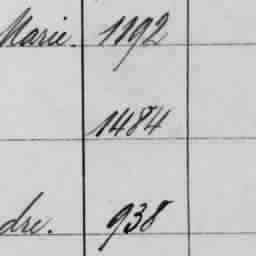 Marie. 1192
1484
dre. 938